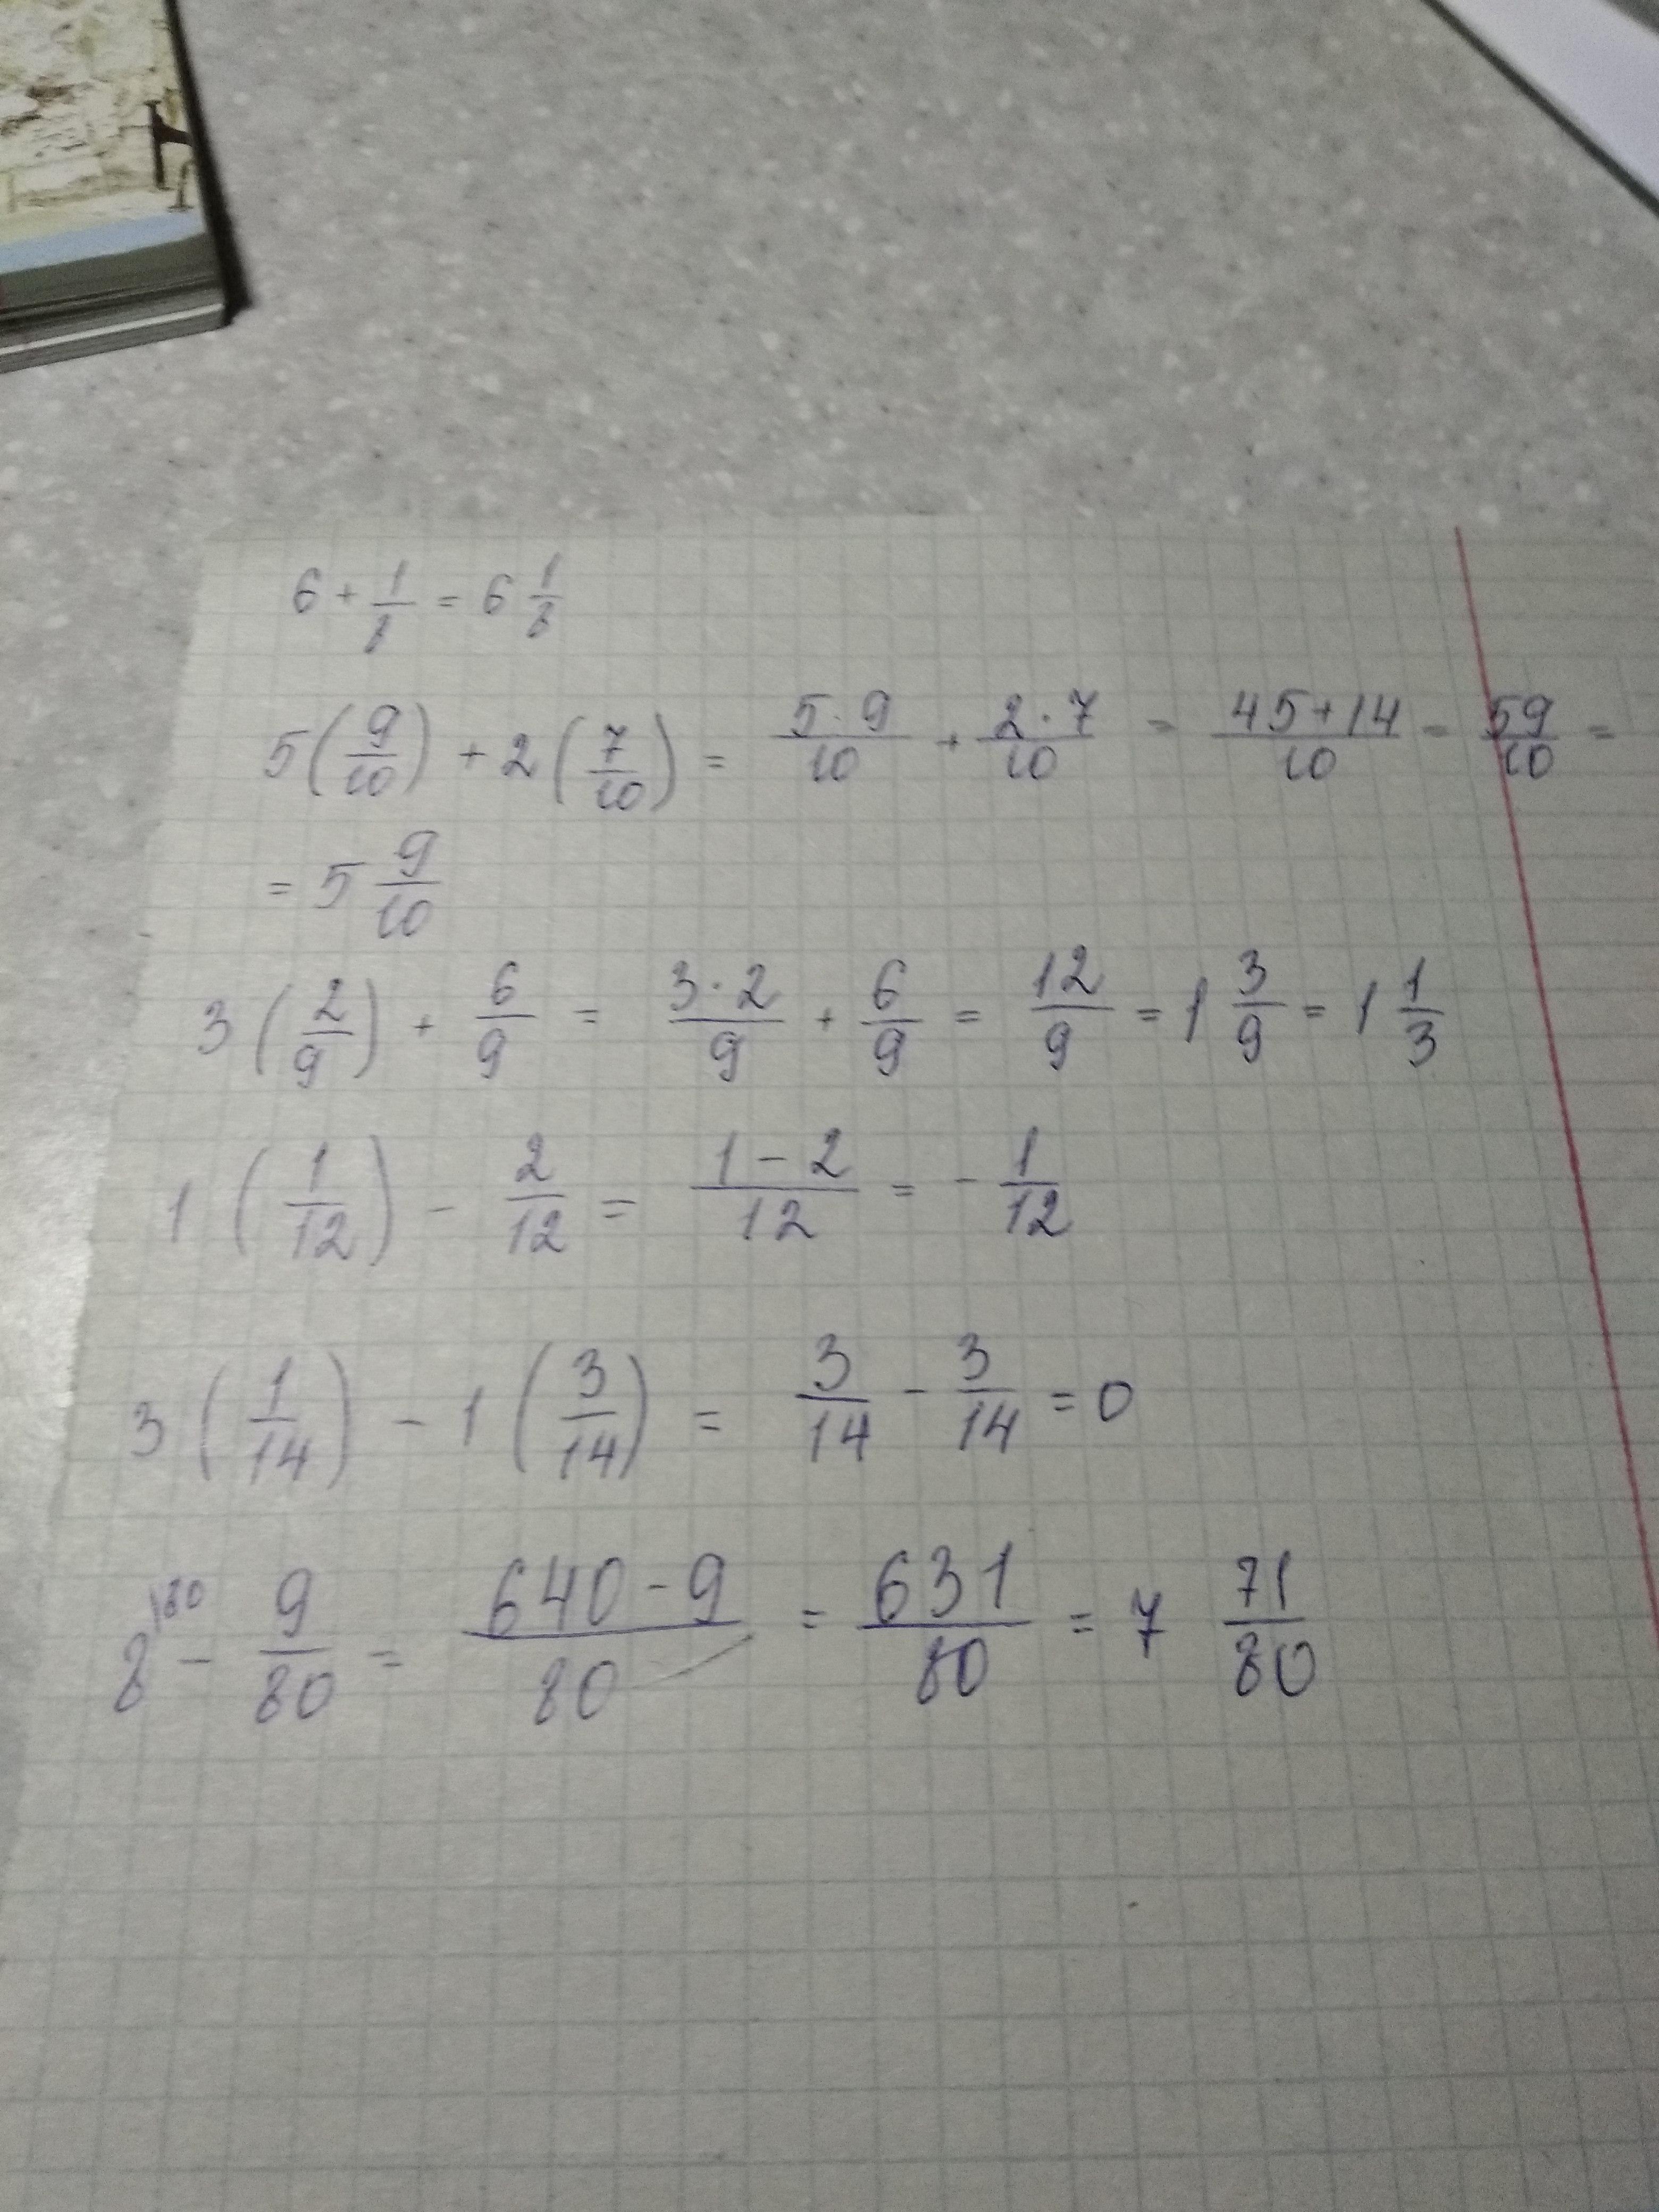 6 + 1/8 = 6 1/8
5(9/10) + 2(7/10) = 5·9/10 + 2·7/10 = 45+14/10 = 59/10 =
= 5 9/10
3(2/9) + 6/9 = 3·2/9 + 6/9 = 12/9 = 1 3/9 = 1 1/3
1(1/12) - 2/12 = 1-2/12 = - 1/12
3(1/14) - 1(3/14) = 3/14 - 3/14 = 0
8 - 9/80 = 640-9/80 = 631/80 = 7 71/80